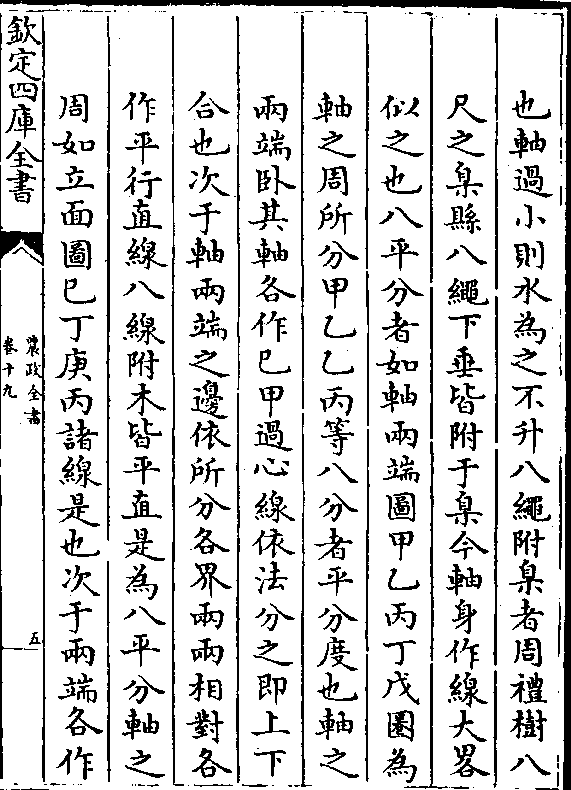 也軸過小則水為之不升八繩附臬者周禮樹八
尺之臬縣八繩下垂皆附于臬今軸身作線大畧
似之也八平分者如軸兩端圖甲乙丙丁戊圈為
軸之周所分甲乙乙丙等八分者平分度也軸之
兩端卧其軸各作巳甲過心線依法分之即上下
合也次于軸兩端之邊依所分各界兩兩相對各
作平行直線八線附木皆平直是為八平分軸之
周如立面圖巳丁庚丙諸線是也次于兩端各作
欽定四庫全書
農政全書
卷十九
五